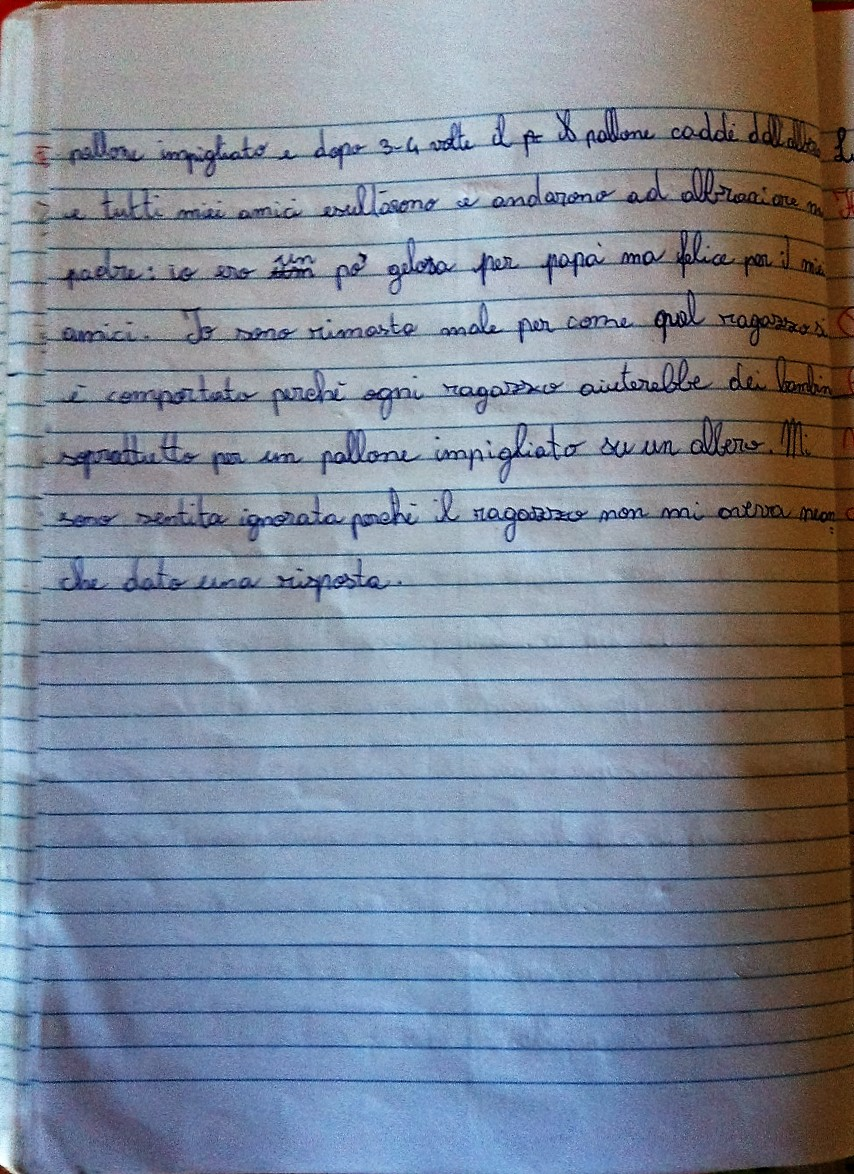 pallone impigliato e dopo 3-4 volte il pallone cadde dall'albero
e tutti miei amici esultarono e andarono ad abbracciare m
padre: io ero un po' gelosa per papà ma felice per i miei
amici. Io sono rimasta male per come quel ragazzo si
è comportato perché ogni ragazzo aiuterebbe dei bambin
soprattutto per un pallone impigliato su un albero. Mi
sono sentita ignorata perché il ragazzo non mi aveva nean
che dato una risposta.